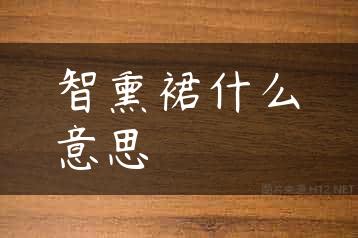 智熏裙什么
意思
图片来源 H12.NET